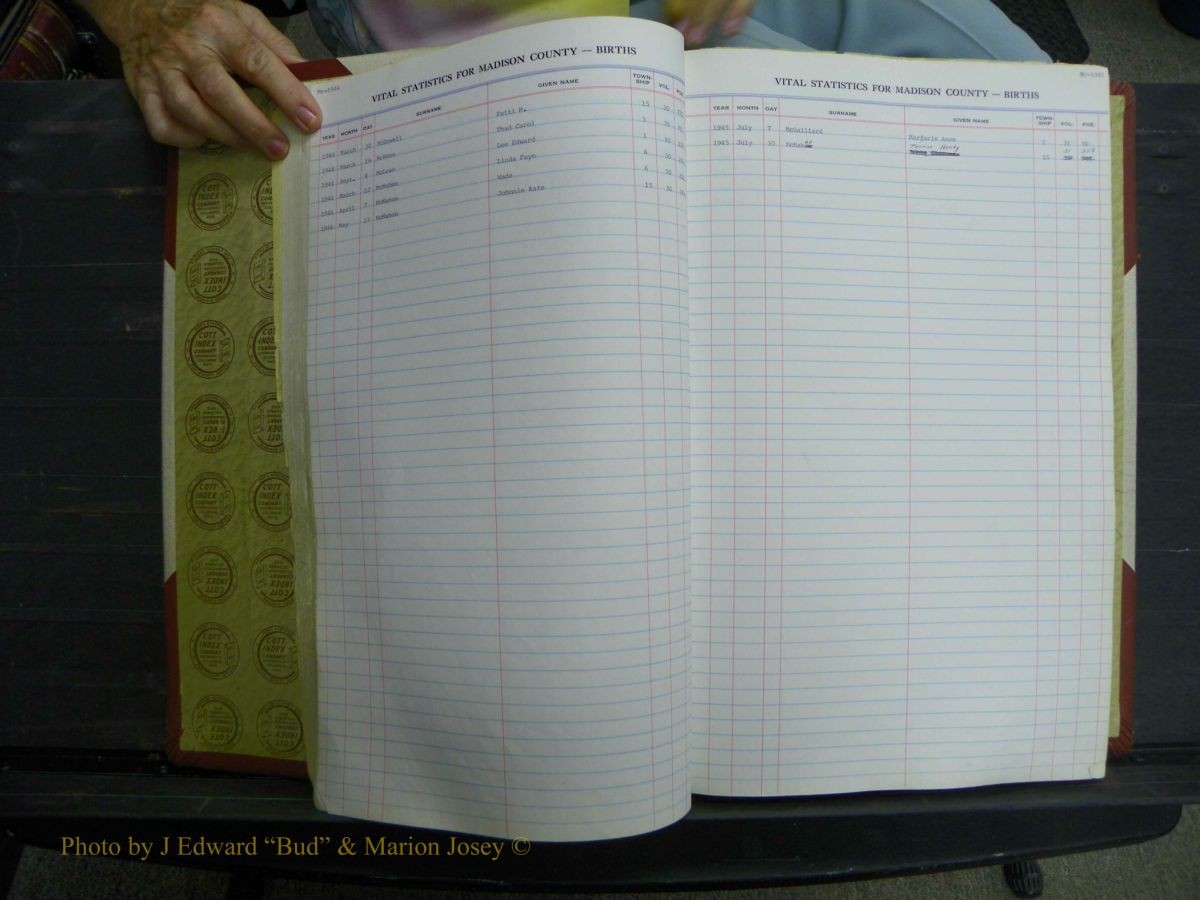 Mc-1944
VITAL STATISTICS FOR MADISON COUNTY — BIRTHS
YEAR MONTH DAY SURNAME GIVEN NAME TOWN-SHIP VOL. PGE.
1944 March 30 McDowell Patti M. 15 30
1944 March 19 Thad Carol 1 30
1944 Sept. 4 McLean Lee Edward 1 30
1944 March 12 McMahan Linda Faye 6 30
1944 April 7 McMahon Wade 6 30
1944 May 17 McMahon Johnnie Kate 15 30
Mc-1945
VITAL STATISTICS FOR MADISON COUNTY — BIRTHS
YEAR MONTH DAY SURNAME GIVEN NAME TOWN-SHIP VOL. PGE.
1945 July 7 McGalliard Marjorie Anne 1 31
1945 July 30 McMahan 15 31
COTT INDEX COMPANY
Photo by J Edward “Bud” & Marion Josey ©